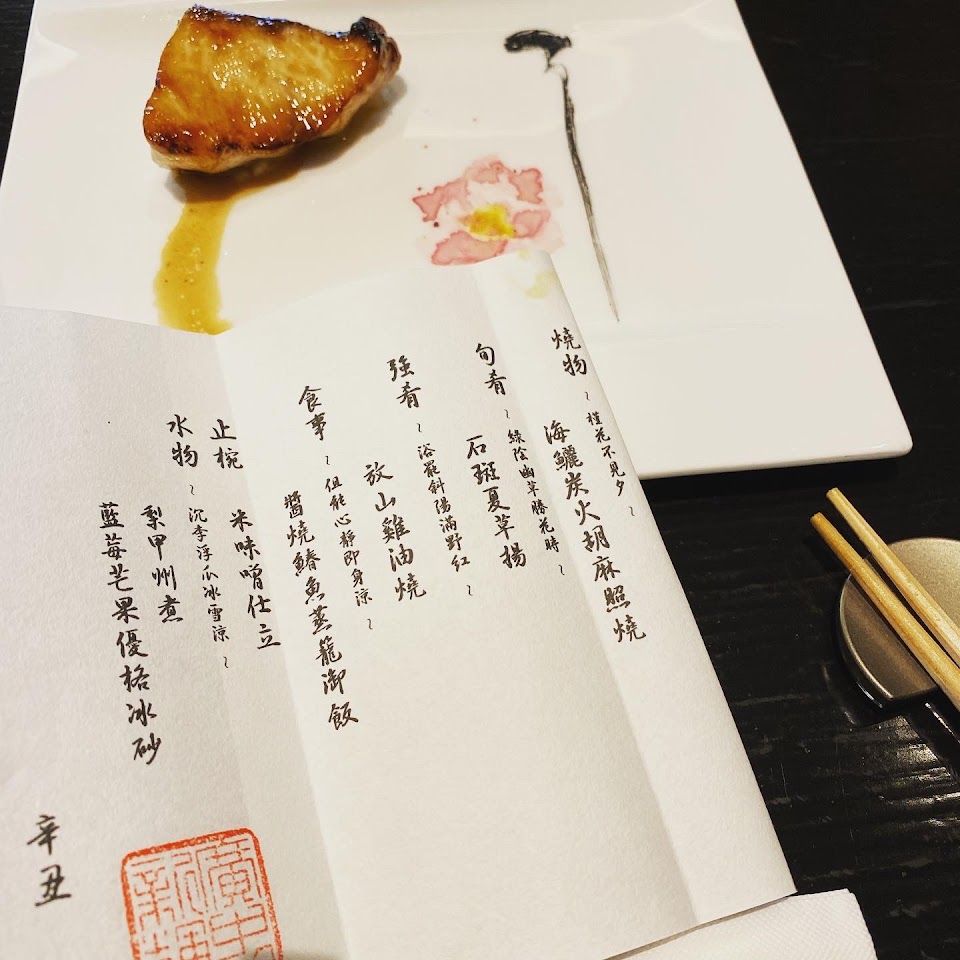 燒物 ~ 槿花不見夕 ~
海鱺炭火胡麻照燒
旬肴 ~ 綠陰幽草勝花時 ~
石斑夏草揚
強肴 ~ 浴罷斜陽滿野紅 ~
放山雞油燒
食事 ~ 但能心靜即身涼 ~
醬燒鰆魚蒸籠御飯
止椀 米味噌仕立
水物 ~ 沉李浮瓜冰雪涼 ~
梨甲州煮
藍莓芒果優格冰砂
辛丑